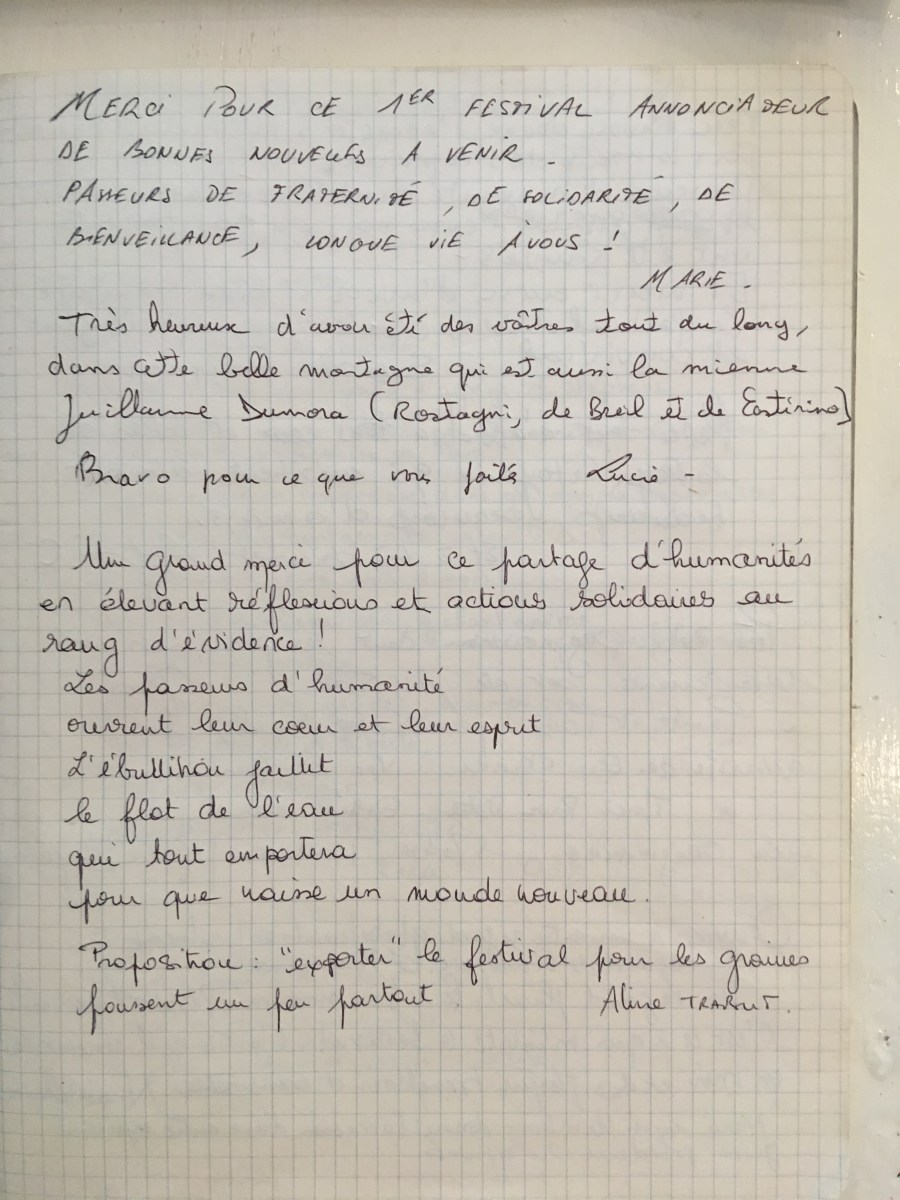 MERCI POUR CE 1ER FESTIVAL ANNONCIATEUR
DE BONNES NOUVELLES A VENIR -
PASSEURS DE FRATERNITÉ, DE SOLIDARITÉ, DE
BIENVEILLANCE, LONGUE VIE À VOUS !
MARIE -
Très heureux d'avoir été des vôtres tout du long,
dans cette belle montagne qui est aussi la mienne
Guillaume Dumora (Rostagni, de Breil et de
Bravo pour ce que vous faites Lucie -
Un grand merci pour ce partage d'humanités
en élevant réflexions et actions solidaires au
rang d'évidence !
Les passeurs d'humanité
ouvrent leur coeur et leur esprit
L'ébullition jaillit
le flot de l'eau
qui tout emportera
pour que naisse un monde nouveau.
Proposition : "exporter" le festival pour les graines
poussent un peu partout. Aline